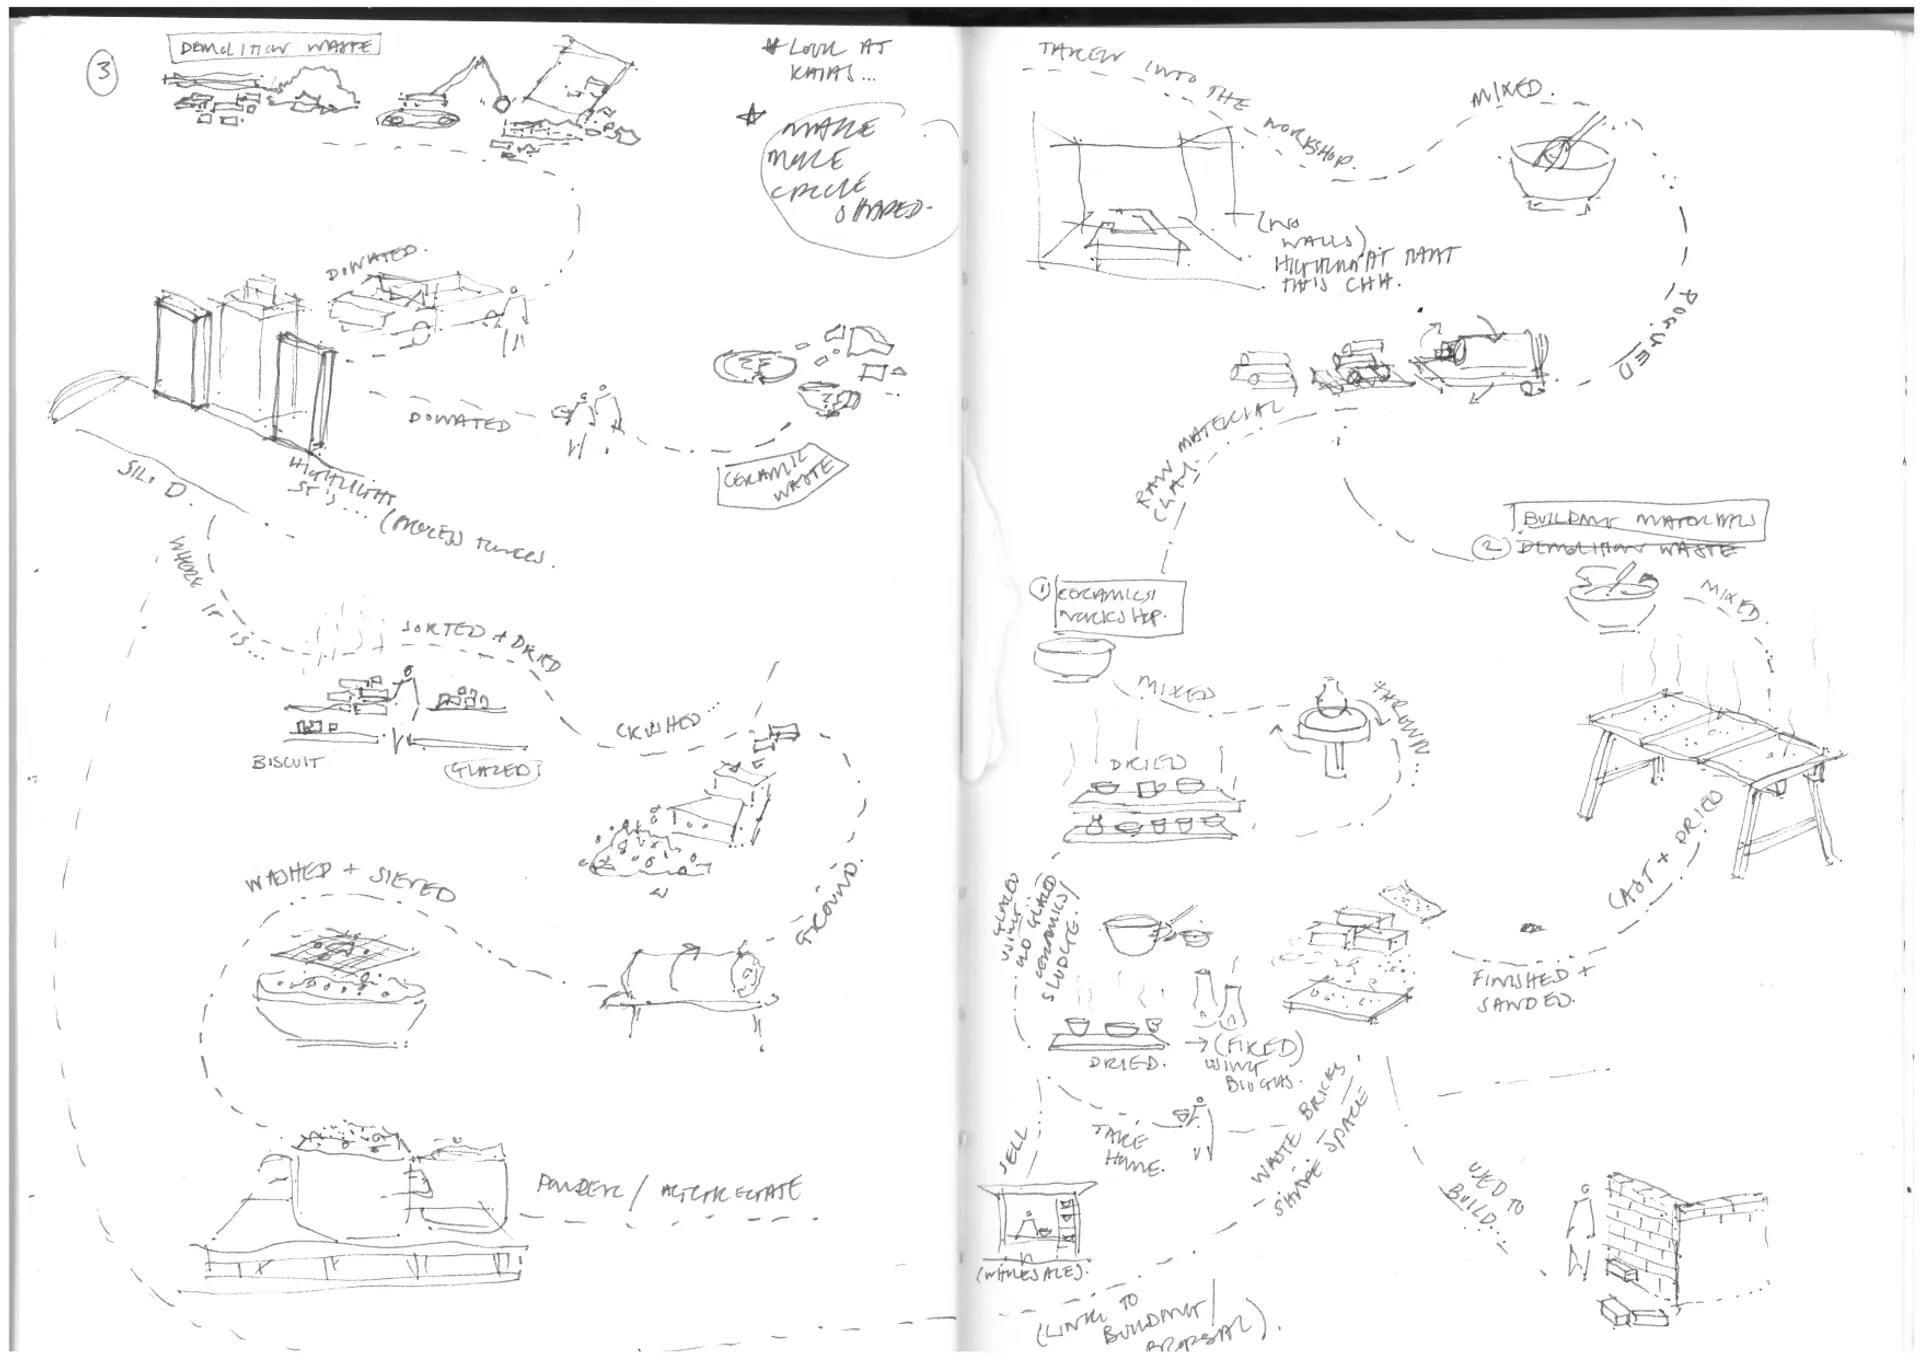 3
DEMOLITION WASTE
* LOOK AT
KAIAS...
* MAKE
MORE
CIRCLE
SHAPED.
DONATED.
DONATED
CERAMIC
WASTE
SILO D.
HIGHLIGHT
(PROCESS TOWERS.
WHERE IT IS...
SORTED + DRIED
BISCUIT
GLAZED
CRUSHED...
GROUND.
WASHED + SIEVED
POWDER / AGGREGATE
TAKEN INTO THE WORKSHOP.
MIXED.
(NO
WALLS)
THIS
POURED
RAW MATERIAL
CLAY.
1
CERAMICS
WORKSHOP.
MIXED
THROWN...
DRIED
GLAZED
USING
OLD GLAZED
CERAMICS/
SLUDGE.
DRIED.
→ (FIRED)
USING
BIOGAS.
SELL
TAKE
HOME.
(WHOLESALE).
BUILDING MATERIALS
2 DEMOLITION WASTE
MIXED.
CAST + DRIED
FINISHED +
SANDED.
WASTE BRICKS
SHAPE SPACE
USED TO
BUILD...
(LINK TO
BUILDING/
PROPOSAL).